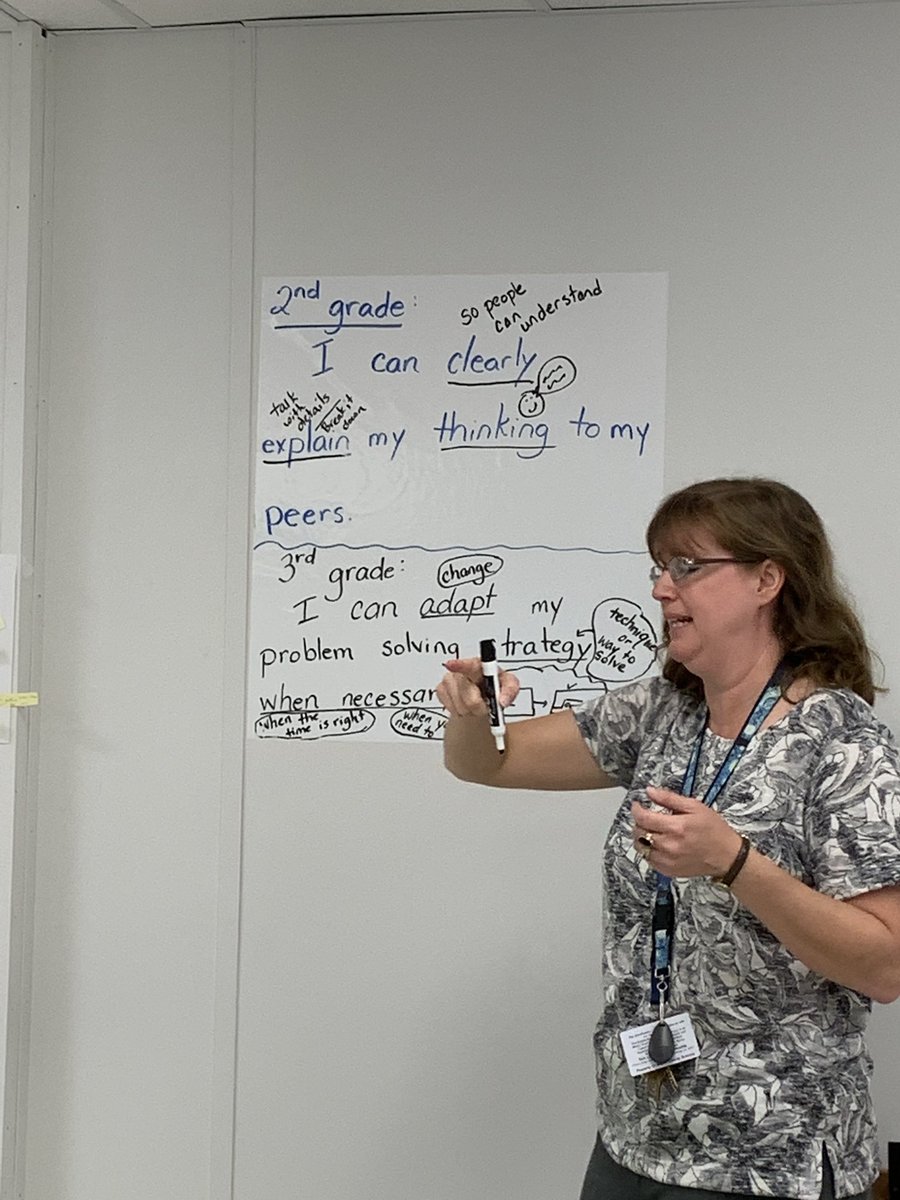 2nd grade:
so people
can understand
I can clearly
talk
with
details
Break it
down
explain my thinking to my
peers.
3rd grade:
change
I can adapt my
technique
or
way to
solve
problem solving strategy
when necessar
when the
time is right
when y
need to